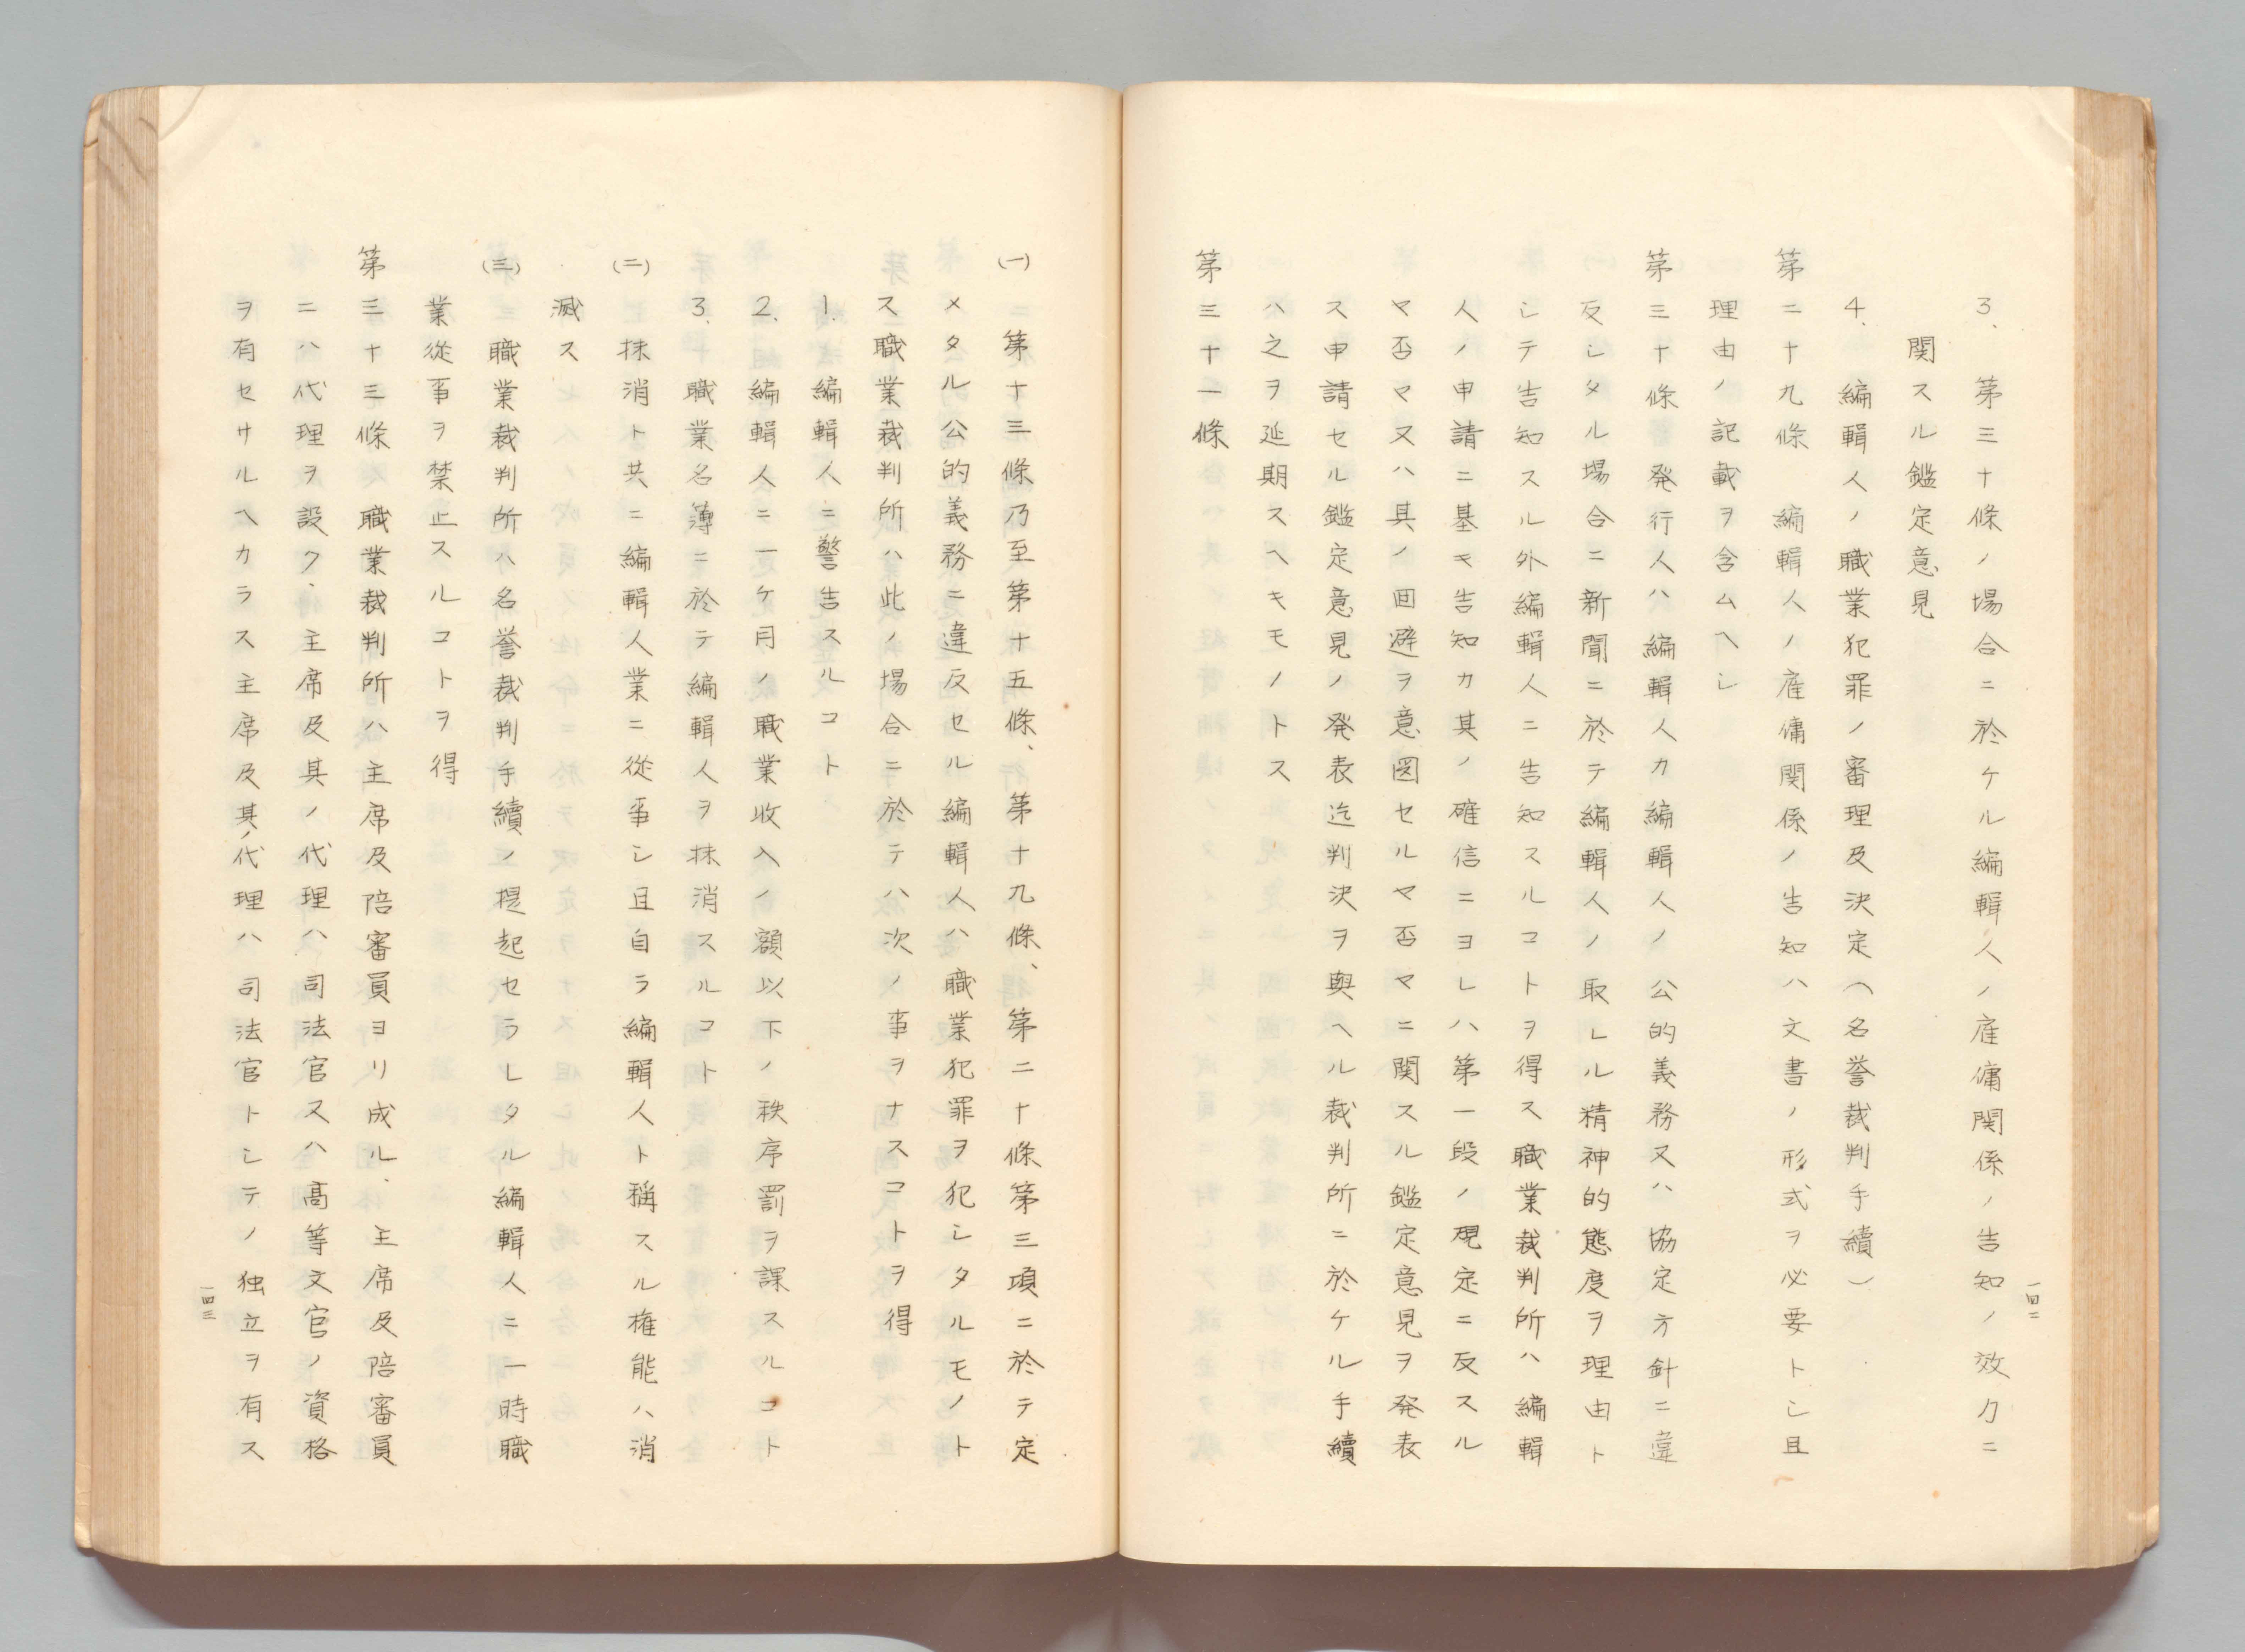 3、第三十條ノ場合ニ於ケル編輯人ノ雇傭関係ノ告知ノ效力ニ
関スル鑑定意見
4、編輯人ノ職業犯罪ノ審理及決定（名誉裁判手續）
第二十九條　編輯人ノ雇傭関係ノ告知ハ文書ノ形式ヲ必要トシ且
理由ノ記載ヲ含ムヘシ
第三十條　発行人ハ編輯人カ編輯人ノ公的義務又ハ協定方針ニ違
反シタル場合ニ新聞ニ於テ編輯人ノ取レル精神的態度ヲ理由ト
シテ告知スル外編輯人ニ告知スルコトヲ得ス職業裁判所ハ編輯
人ノ申請ニ基キ告知カ其ノ確信ニヨレハ第一段ノ規定ニ反スル
ヤ否ヤ又ハ其ノ回避ヲ意図セルヤ否ヤニ関スル鑑定意見ヲ発表
ス申請セル鑑定意見ノ発表迄判決ヲ與ヘル裁判所ニ於ケル手續
ハ之ヲ延期スヘキモノトス
第三十一條
一四二
(一)第十三條乃至第十五條、第十九條、第二十條第三項ニ於テ定
メタル公的義務ニ違反セル編輯人ハ職業犯罪ヲ犯シタルモノト
ス職業裁判所ハ此ノ場合ニ於テハ次ノ事ヲナスコトヲ得
1.編輯人ニ警告スルコト
2.編輯人ニ一ケ月ノ職業收入ノ額以下ノ秩序罰ヲ課スルコト
3.職業名簿ニ於テ編輯人ヲ抹消スルコト
(二)抹消ト共ニ編輯人業ニ從事シ且自ラ編輯人ト稱スル権能ハ消
滅ス
(三)職業裁判所ハ名誉裁判手續ノ提起セラレタル編輯人ニ一時職
業從事ヲ禁止スルコトヲ得
第三十三條　職業裁判所ハ主席及陪審員ヨリ成ル、主席及陪審員
ニハ代理ヲ設ク、主席及其ノ代理ハ司法官又ハ高等文官ノ資格
ヲ有セサルヘカラス主席及其ノ代理ハ司法官トシテノ独立ヲ有ス
一四三